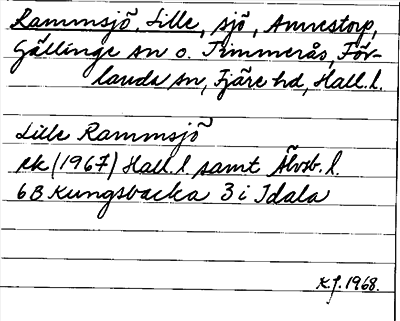 Rammsjö, Lille, sjö, Amnestorp,
Gällinge sn o. Timmerås, För-
landa sn, Fjäre hd, Hall. l.
Lille Rammsjö
ek (1967) Hall. l samt Älvsb. l.
6B Kungsbacka 3 i Idala
K.J. 1968.